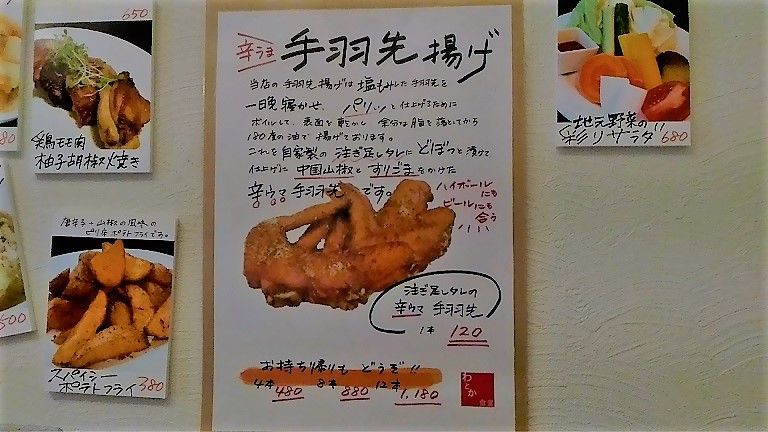 650
鶏モモ肉
柚子胡椒焼き
唐辛子+山椒の風味の
ピリ辛ポテトフライです。
スパイシー
ポテトフライ 380
80
500
辛うま 手羽先揚げ
当店の手羽先揚げは塩もみした手羽先を
一晩寝かせ、パリッと仕上げるために
ボイルして、表面を乾かし 余分な脂を落としてから
180度の油で揚げております。
これを自家製の注ぎ足しタレにどぼっと漬けて
仕上げに中国山椒とすりごまをかけた
辛ウマ手羽先です。
ハイボールにも
ビールにも
合う
注ぎ足しタレの
辛ウマ 手羽先
1本 120
お持ち帰りも どうぞ!!
4本 480 8本 880 12本 1,180
わとか
食堂
地元野菜の
彩りサラダ 680